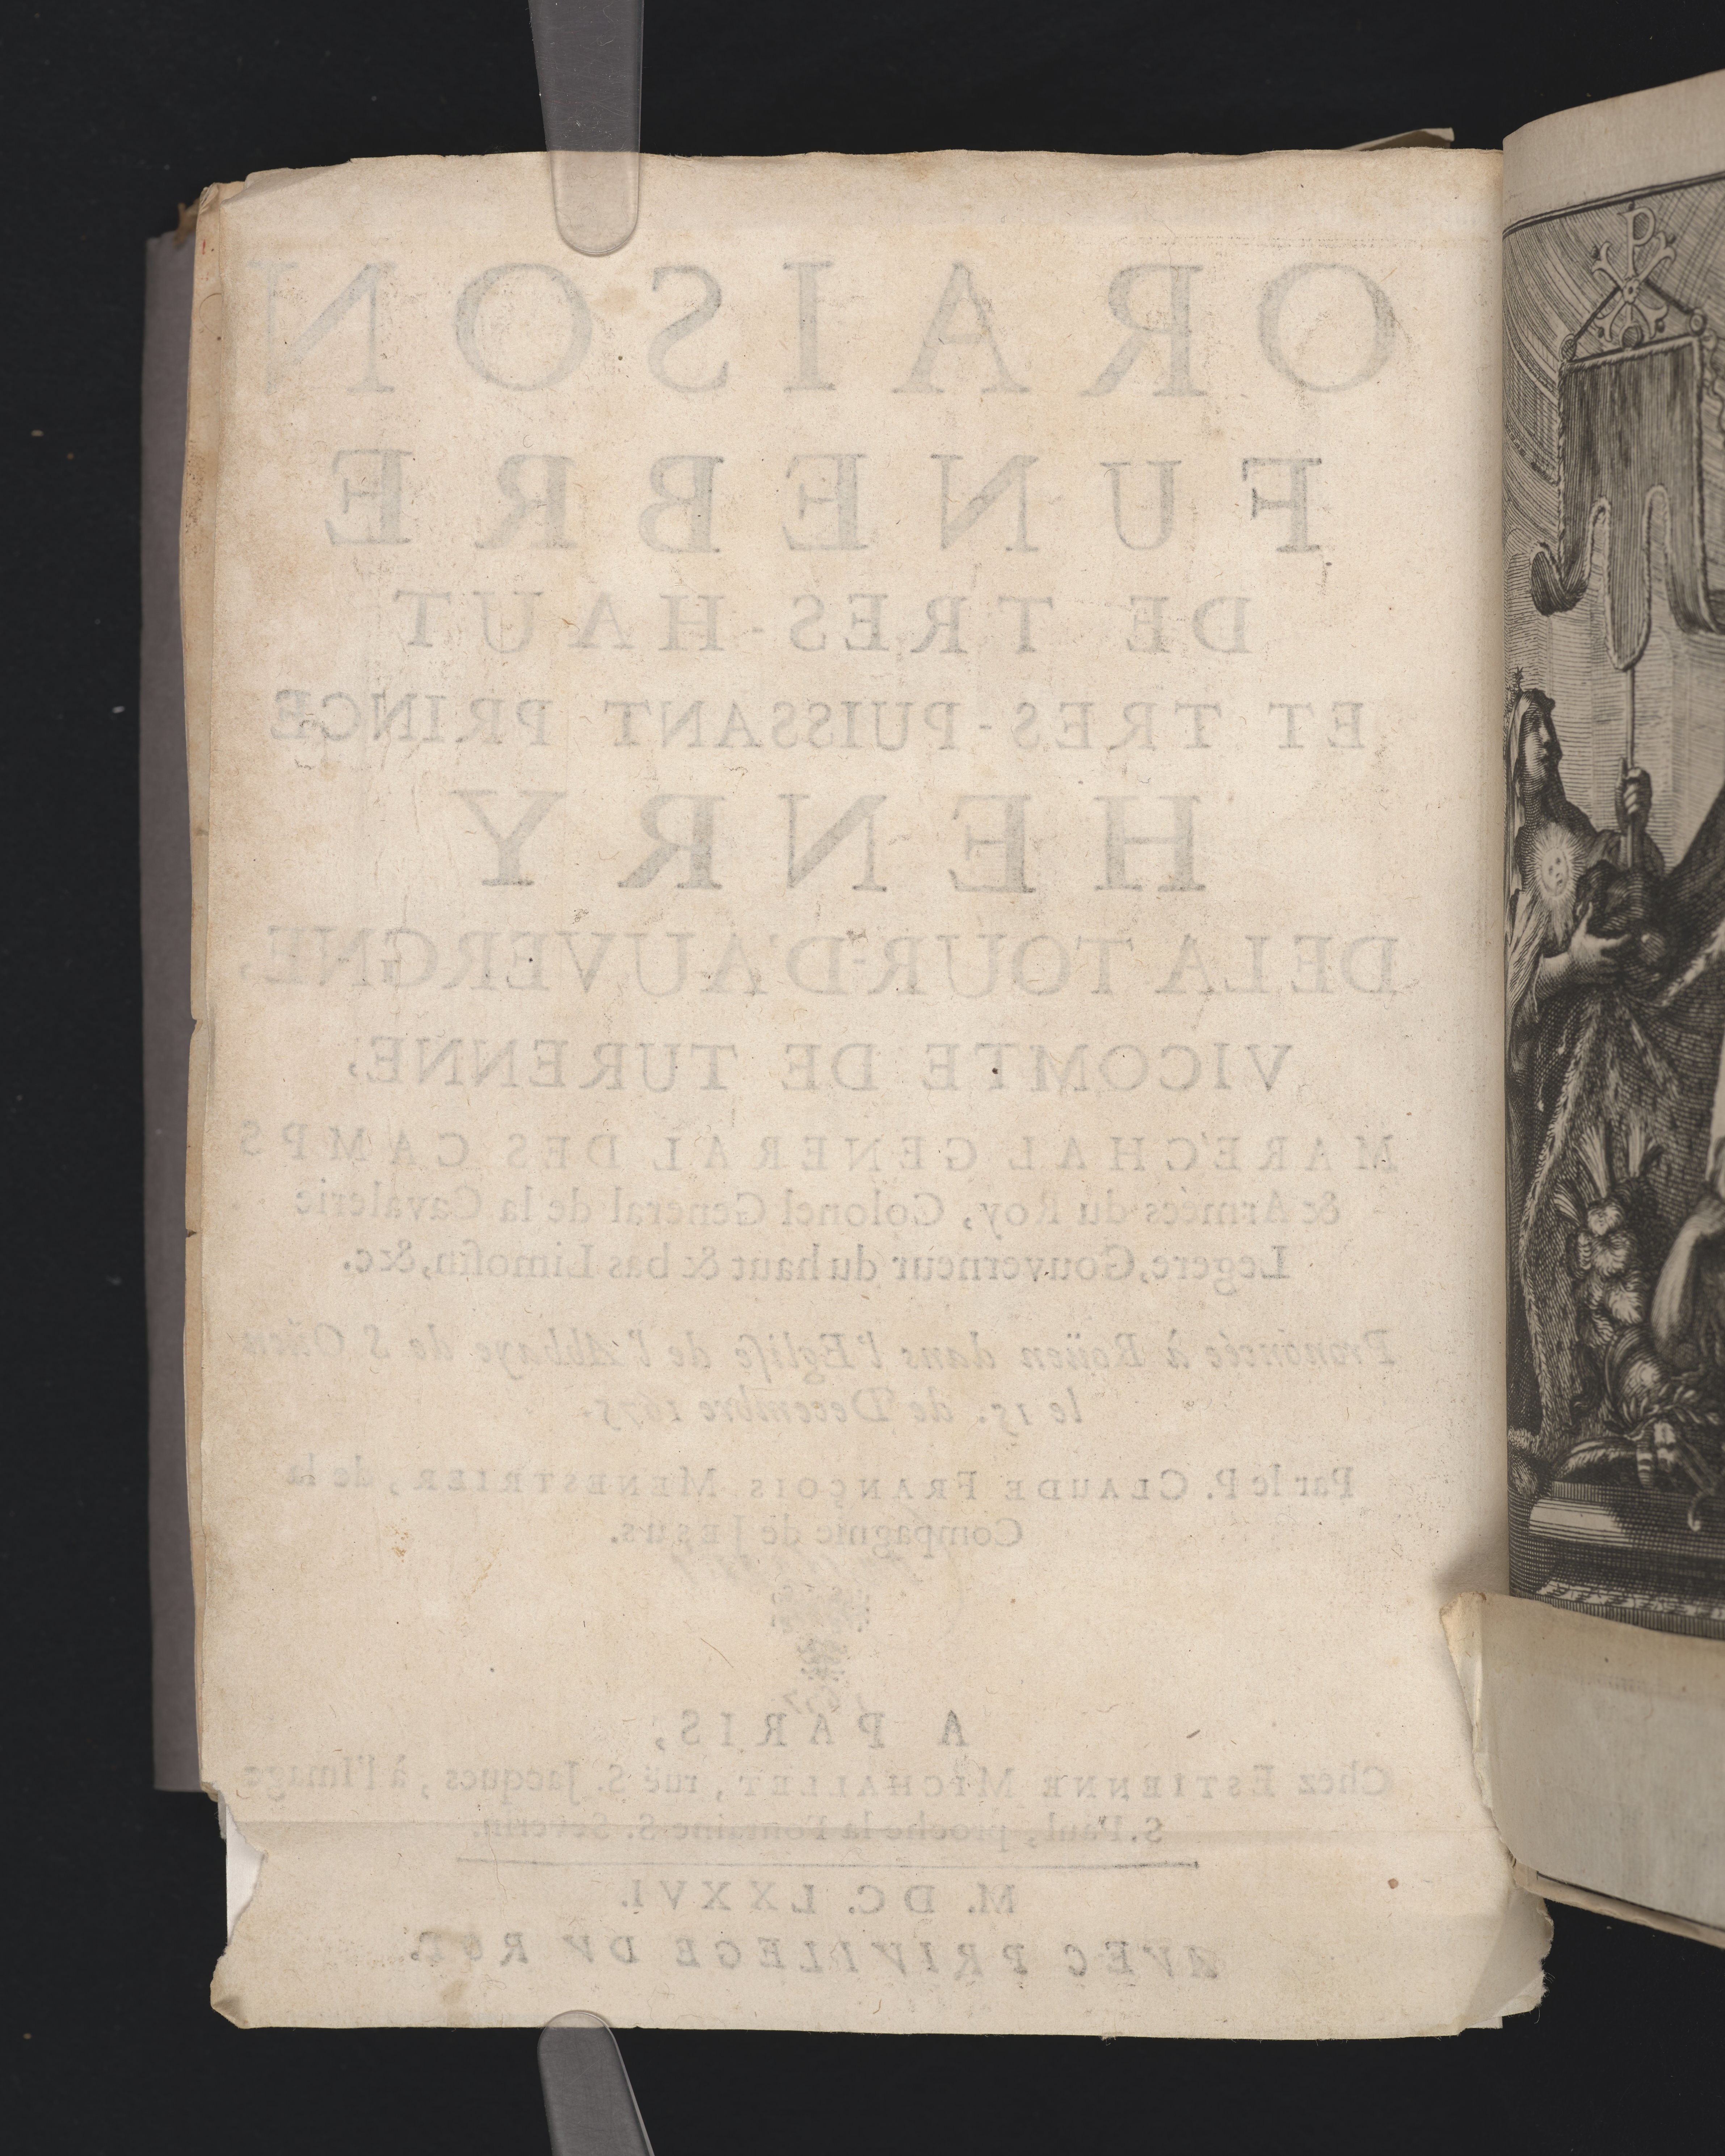 ORAISON
FUNEBRE
DE TRES-HAUT
ET TRES-PUISSANT PRINCE
HENRY
DE LA TOUR-D'AUVERGNE,
VICOMTE DE TURENNE,
MARE'CHAL GENERAL DES CAMPS
& Armées du Roy, Colonel General de la Cavalerie
Legere, Gouverneur du haut & bas Limosin, &c.
Prononcée à Roüen dans l'Eglise de l'Abbaye de S. Oüen
le 15. de Decembre 1675.
Par le P. CLAUDE FRANÇOIS MENESTRIER, de la
Compagnie de JESUS.
A PARIS,
Chez ESTIENNE MICHALLET, ruë S. Jacques, à l'Image
S. Paul, proche la Fontaine S. Severin.
M. DC. LXXVI.
AVEC PRIVILEGE DV ROY.